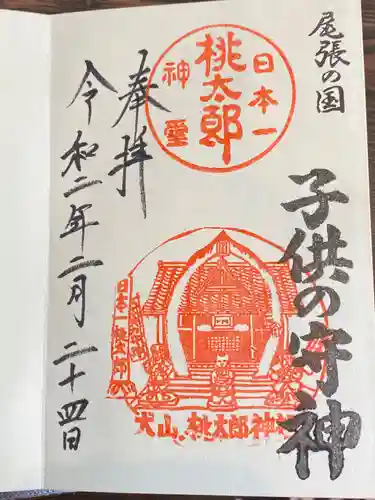 尾張の国
子供の守神
日本一
桃太郎
神霊
奉拝
犬山.桃太郎神社
令和二年二月二十四日